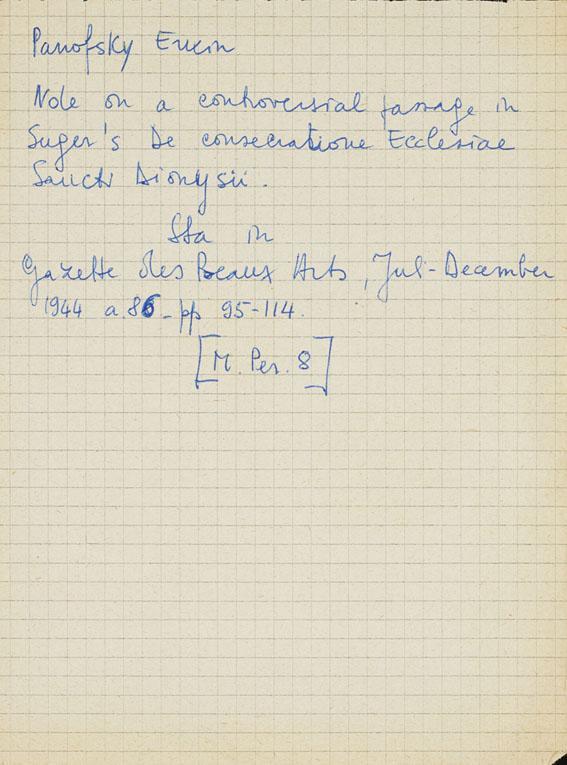 Panofsky Erwin
Note on a controversial passage in
Suger's De consecratione Ecclesiae
Sancti Dionysii.
Sta in
Gazette des Beaux Arts, Jul-December
1944 a. 86 - pp 95-114.
[M. Per. 8]